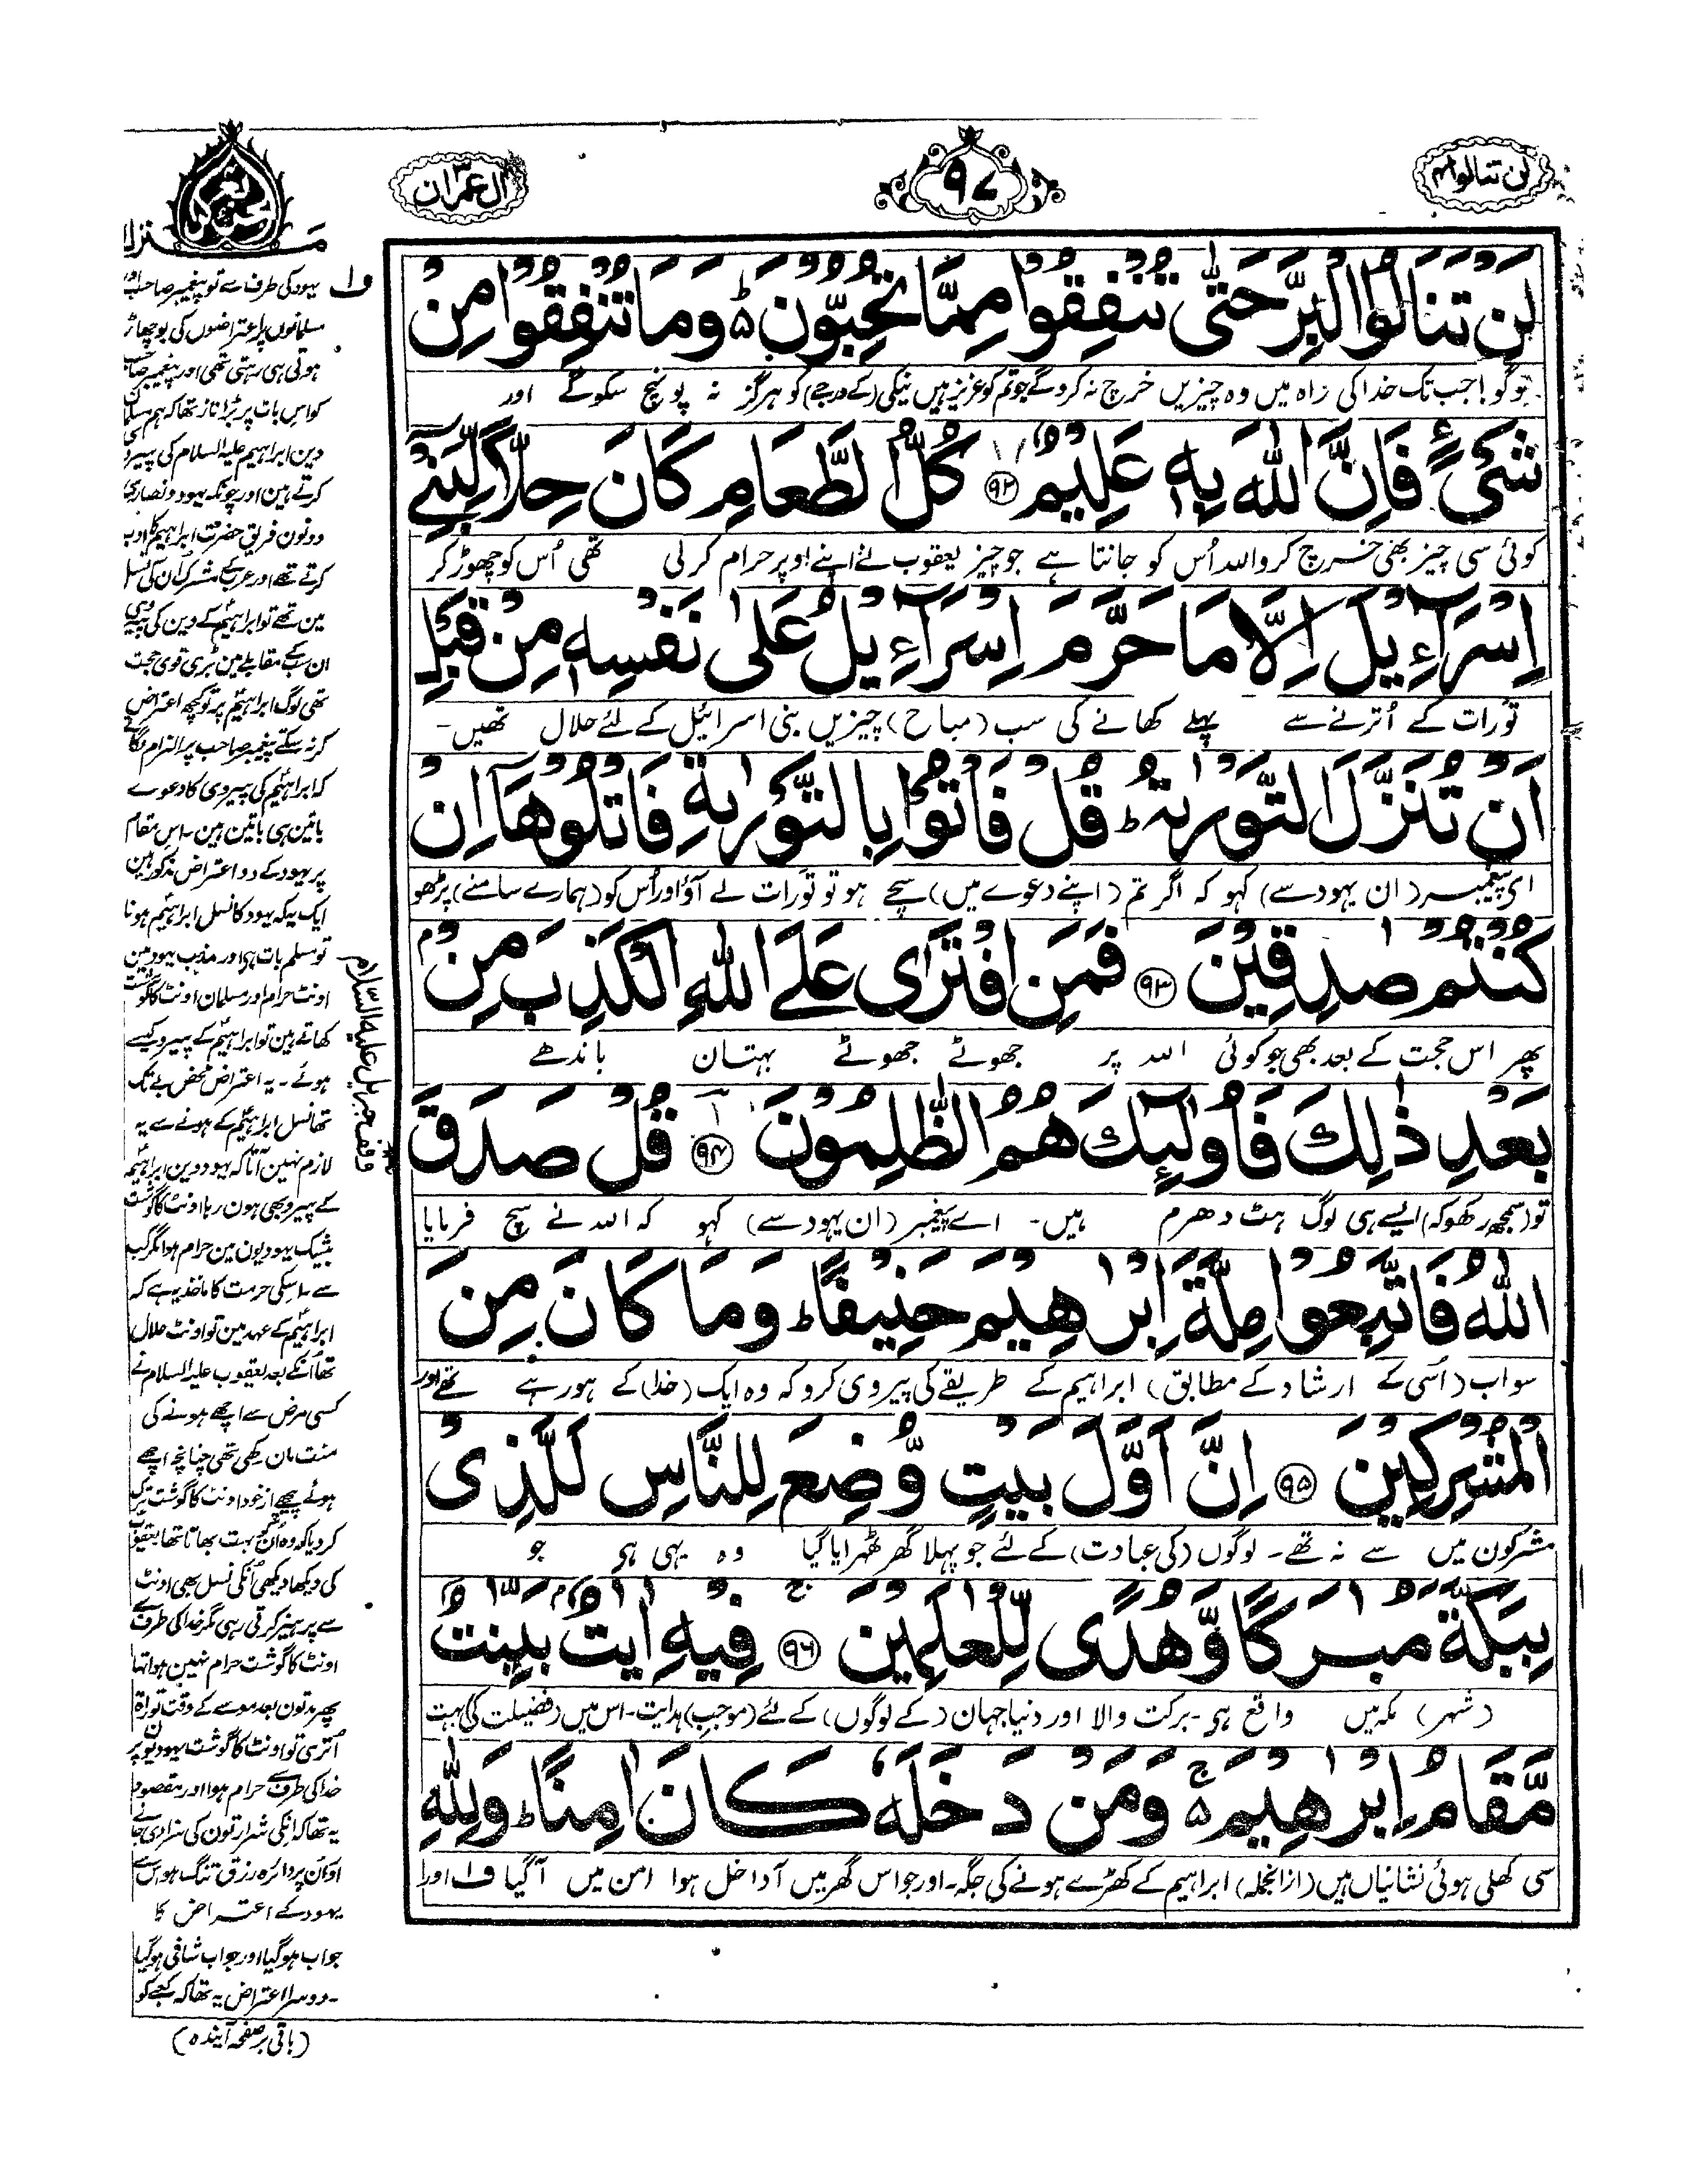 لن تنالوا ٤
٩٧
اٰل عمرٰن ٣
لَنْ تَنَالُوا الْبِرَّ حَتّٰى تُنْفِقُوْا مِمَّا تُحِبُّوْنَ ؕ۬ وَمَا تُنْفِقُوْا مِنْ
لوگو! جب تک خدا کی راہ میں وہ چیزیں خرچ نہ کرو گے جو تم کو عزیز ہیں نیکی (کے درجے) کو ہرگز نہ پہونچ سکو گے اور
شَیْءٍ فَاِنَّ اللّٰهَ بِهٖ عَلِیْمٌ ﴿۹۲﴾ كُلُّ الطَّعَامِ كَانَ حِلًّا لِّبَنِیْۤ
کوئی سی چیز بھی خرچ کرو اللہ اُس کو جانتا ہے جو چیز یعقوب نے اپنے اوپر حرام کر لی تھی اُس کو چھوڑ کر
اِسْرَآءِیْلَ اِلَّا مَا حَرَّمَ اِسْرَآءِیْلُ عَلٰى نَفْسِهٖ مِنْ قَبْلِ
تورات کے اُترنے سے پہلے کھانے کی سب (مباح) چیزیں بنی اسرائیل کے لئے حلال تھیں۔
اَنْ تُنَزَّلَ التَّوْرٰىةُ ؕ قُلْ فَاْتُوْا بِالتَّوْرٰىةِ فَاتْلُوْهَاۤ اِنْ
ای پیغمبر (ان یہود سے) کہو کہ اگر تم (اپنے دعوے میں) سچے ہو تو تورات لے آؤ اور اُس کو (ہمارے سامنے) پڑھو
كُنْتُمْ صٰدِقِیْنَ ﴿۹۳﴾ فَمَنِ افْتَرٰى عَلَى اللّٰهِ الْكَذِبَ مِنْۢ
پھر اس حجت کے بعد بھی جو کوئی اللہ پر جھوٹے جھوٹے بہتان باندھے
بَعْدِ ذٰلِكَ فَاُولٰٓىِٕكَ هُمُ الظّٰلِمُوْنَ ﴿۹۴﴾ قُلْ صَدَقَ
تو (سمجھ رکھو کہ) ایسے ہی لوگ ہٹ دھرم ہیں۔ اے پیغمبر (ان یہود سے) کہو کہ اللہ نے سچ فرمایا
اللّٰهُ فَاتَّبِعُوْا مِلَّةَ اِبْرٰهِیْمَ حَنِیْفًا ؕ وَمَا كَانَ مِنَ
سو اب (اُسی کے ارشاد کے مطابق) ابراہیم کے طریقے کی پیروی کرو کہ وہ ایک (خدا) کے ہو رہے تھے اور
الْمُشْرِكِیْنَ ﴿۹۵﴾ اِنَّ اَوَّلَ بَیْتٍ وُّضِعَ لِلنَّاسِ لَلَّذِیْ
مشرکوں میں سے نہ تھے۔ لوگوں (کی عبادت) کے لئے جو پہلا گھر ٹھہرایا گیا وہ یہی ہی جو
بِبَكَّةَ مُبٰرَكًا وَّهُدًى لِّلْعٰلَمِیْنَ ﴿۹۶﴾ فِیْهِ اٰیٰتٌۢ بَیِّنٰتٌ
(شہر) مکہ میں واقع ہی۔ برکت والا اور دنیا جہان (کے لوگوں) کے لئے (موجب) ہدایت۔ اس میں (فضیلت کی) بہت
مَّقَامُ اِبْرٰهِیْمَ ۚ۬ وَمَنْ دَخَلَهٗ كَانَ اٰمِنًا ؕ وَلِلّٰهِ
سی کھلی ہوئی نشانیاں ہیں (ازانجملہ) ابراہیم کے کھڑے ہونے کی جگہ۔ اور جو اس گھر میں آ داخل ہوا امن میں آ گیا ف۱ اور
وقف جبریل علیہ السّلام
منزل
ف۱ یہود کی طرف سے تو پیغمبر صاحب اور
مسلمانوں پر اعتراضوں کی بوچھاڑ
ہوتی ہی رہتی تھی اور پیغمبر صاحب
کو اس بات پر بڑا ناز تھا کہ ہم مسلمان
دین ابراہیم علیہ السلام کی پیروی
کرتے ہین اور چونکہ یہود و نصاریٰ
دونون فریق حضرت ابراہیم کا ادب
کرتے تھے اور عرب کے مشرک ان کی نسل
مین تھے تو ابراہیمؑ کے دین کی پیروی
ان سب کے مقابلے مین بڑی قوی حجت
تھی لوگ ابراہیمؑ پر تو کچھ اعتراض
کر نہ سکتے پیغمبر صاحب پر الزام لگاتے
کہ ابراہیمؑ کی پیروی کا دعوے
باتین ہی باتین ہین۔ اس مقام
پر یہود کے دو اعتراض مذکور ہین
ایک یہ کہ یہود کا نسل ابراہیمؑ ہونا
تو مسلم بات ہی اور مذہب یہود مین
اونٹ حرام اور مسلمان اونٹ کا گوشت
کھاتے ہین تو ابراہیمؑ کے پیرو کیسے
ہوئے۔ یہ اعتراض محض بے تک
تھا نسل ابراہیمؑ کے ہونے سے یہ
لازم نہین آتا کہ یہود دین ابراہیمؑ
کے پیرو بھی ہون رہا اونٹ کا گوشت
بیشک یہودیون مین حرام ہوا مگر کب
سے۔ اسکی حرمت کا ماخذ یہ ہے کہ
ابراہیمؑ کے عہد مین تو اونٹ حلال
تھا اُنکے بعد یعقوب علیہ السلام نے
کسی مرض سے اچھے ہونے کی
منت مان رکھی تھی چنانچہ اچھے
ہوئے پیچھے از خود اونٹ کا گوشت ترک
کر دیا کہ وہ اُن کو بہت بھاتا تھا یعقوبؑ
کی دیکھا دیکھی اُنکی نسل بھی اونٹ
سے پرہیز کرتی رہی مگر خدا کی طرف سے
اونٹ کا گوشت حرام نہین ہوا تھا
پھر مدتون بعد موسے کے وقت توراۃ
اُتری تو اونٹ کا گوشت یہودیون پر
خدا کی طرف سے حرام ہوا اور مقصود
یہ تھا کہ انکی شرارتون کی سزا دی جائے
اور اُن پر دائرہ رزق تنگ ہو اس سے
یہود کے اعتراض کا
جواب ہو گیا اور جواب شافی ہو گیا
۔دوسرا اعتراض یہ تھا کہ کعبے کو
(باقی بر صفحہ آیندہ)